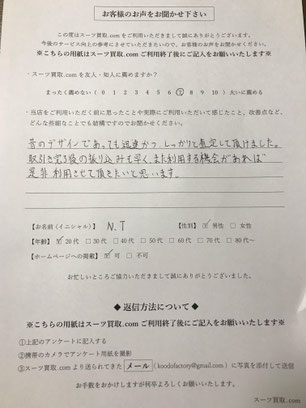 お客様のお声をお聞かせ下さい
この度はスーツ買取.comをご利用いただきまして誠にありがとうございます。
今後のサービス向上の参考にさせていただきたいので、お客様のお声をお聞かせください。
※こちらの用紙はスーツ買取.comご利用終了後にご記入をお願いいたします※
・スーツ買取.comを友人・知人に薦めますか？
まったく薦めない（0 1 2 3 4 5 6 7 8 9 10）大いに薦める
・当店をご利用いただく前に思ったことや実際にご利用いただいて感じたこと、改善点など、
どんな些細なことでも結構ですのでお聞かせください。
昔のデザインであっても迅速かつ、しっかりと査定して頂けました。
取引完了後の振り込みも早く、また利用する機会があれば
是非利用させて頂きたいと思います。
【お名前（イニシャル）】 N.T 【性別】☑男性 □女性
【年齢】☑20代 □30代 □40代 □50代 □60代 □70代 □80代～
【ホームページへの掲載】☑可 □不可
お忙しいところご協力いただきまして誠にありがとうございました。
◆ 返信方法について ◆
※こちらの用紙はスーツ買取.comご利用終了後にご記入をお願いいたします※
①上記のアンケートに記入する
②携帯のカメラでアンケート用紙を撮影
③スーツ買取.comより送られてきた メール（koodofactory@gmail.com）に写真を添付して送信
お手数をおかけしますが何卒よろしくお願いいたします。
スーツ買取.com